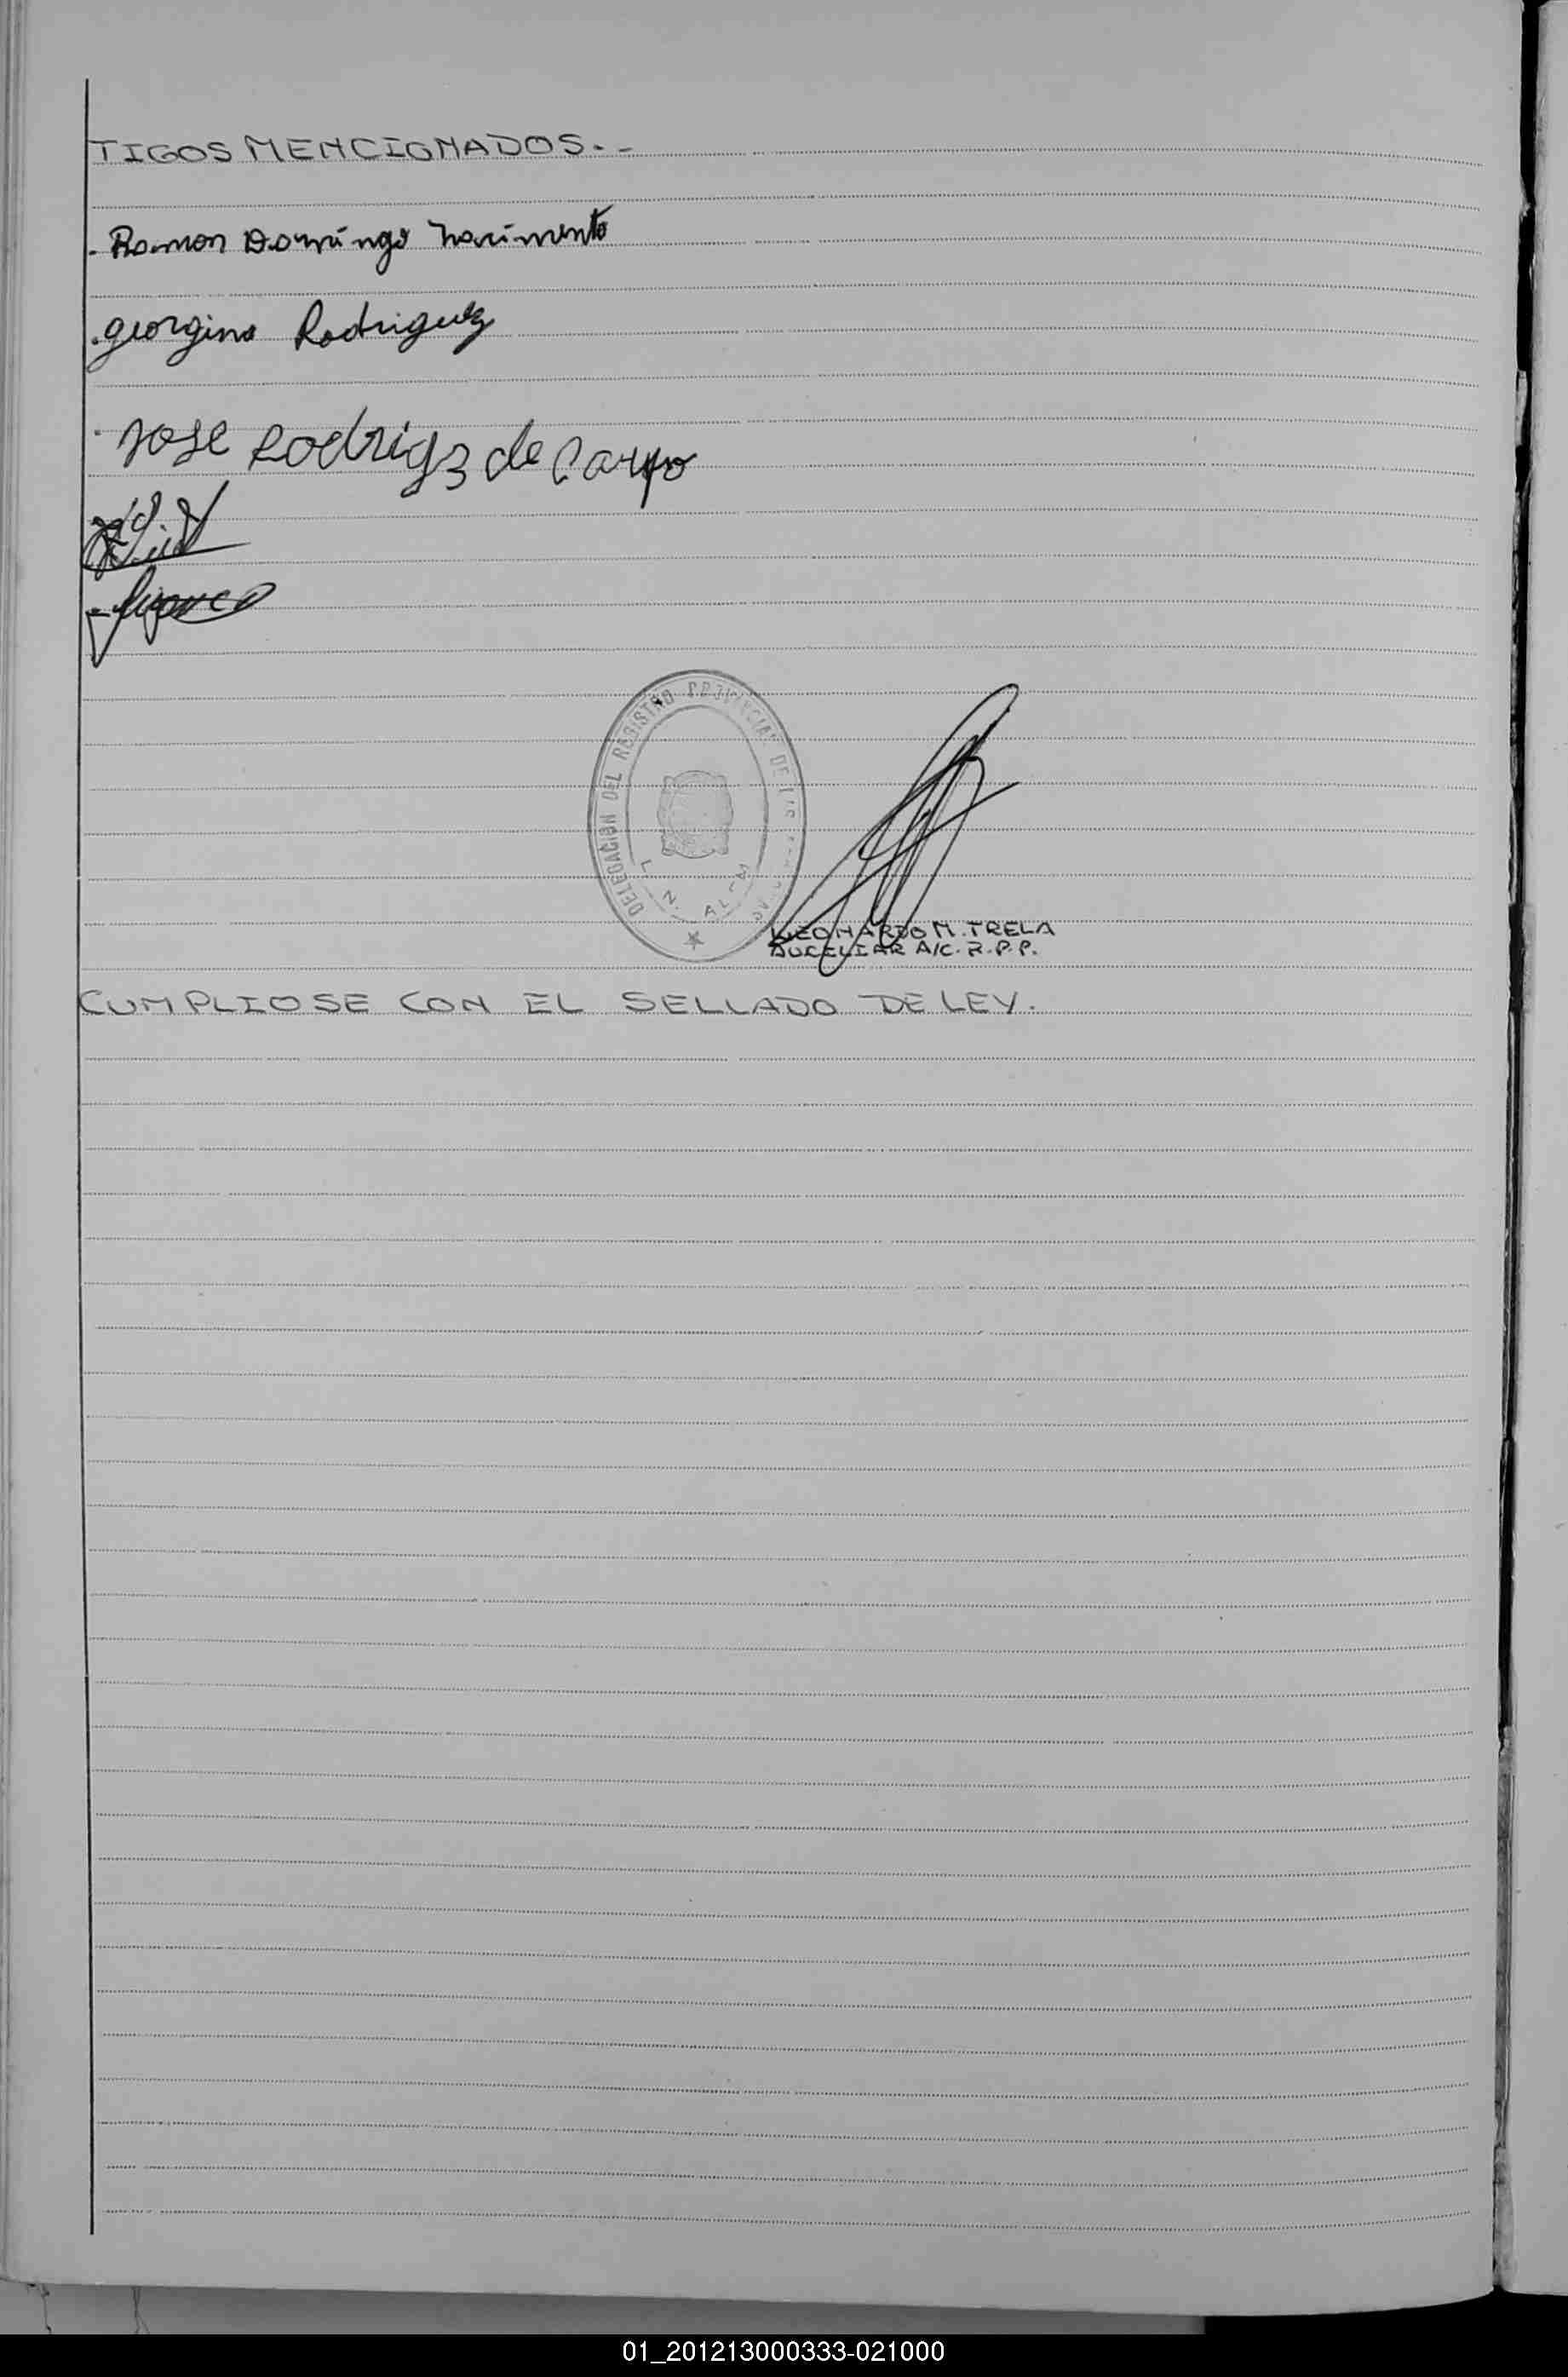 TIGOS MENCIONADOS.-
Ramon Domingo Nacimento
georgina Rodriguez
Jose Rodrigz de Campo
DELEGACION DEL REGISTRO PROVINCIAL DE
L. N. ALEM
LEONARDO M. TRELA
AUCELIAR A/C. R.P.P.
CUMPLIOSE CON EL SELLADO DE LEY.
01_201213000333-021000